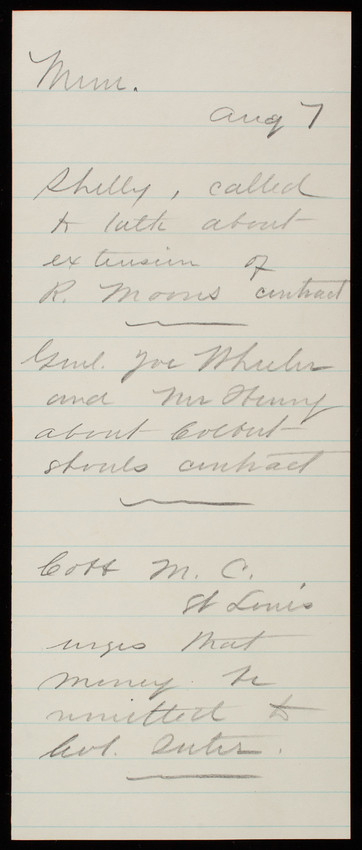 Mem.
Aug 7
Shelly, called
to talk about
extension of
R. Moons contract
Genl. Joe Wheeler
and Mr Henry
about Colbert
shouls contract
Cobb M. C.
St Louis
urges that
money be
remitted to
Col. Suter.